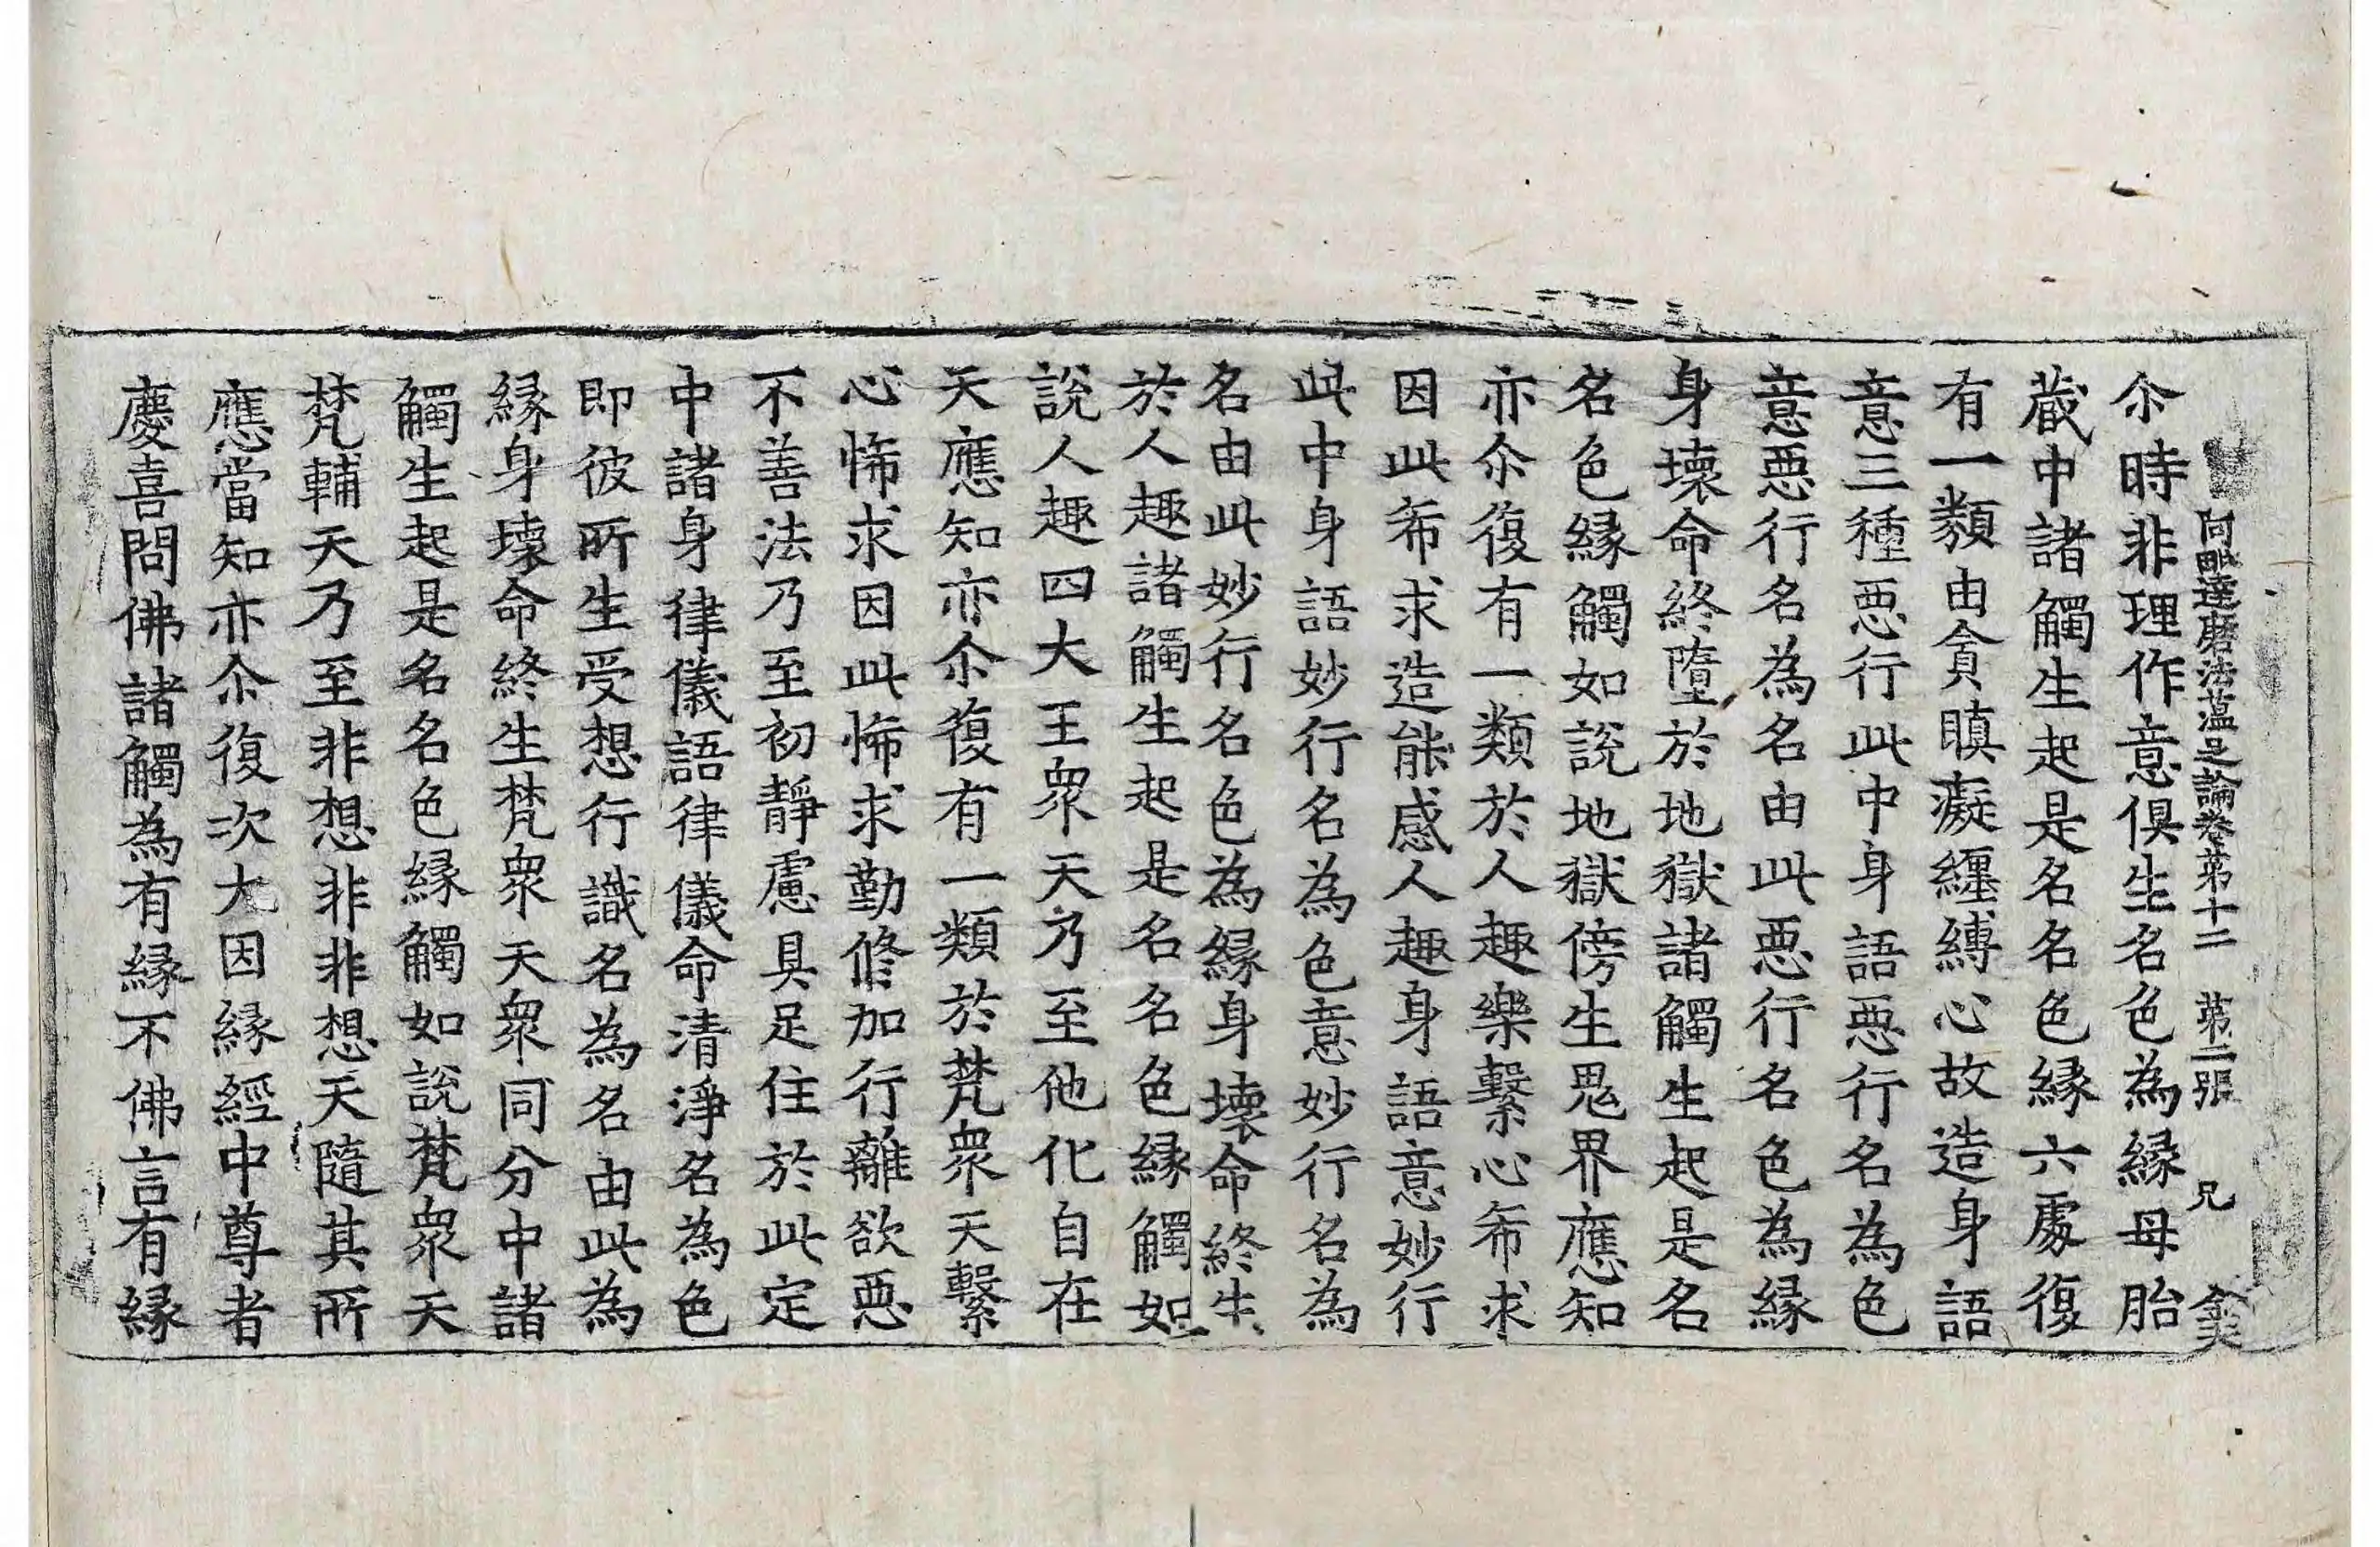 阿毗達磨法蕴足論卷第十二　第二張　兄
尒時非理作意俱生名色為緣母胎
蔵中諸觸生起是名名色緣六處復
有一類由貪瞋癡纏縛心故造身語
意三種惡行此中身語惡行名為色
意惡行名為名由此惡行名色為緣
身壞命終墮於地獄諸觸生起是名
名色緣觸如說地獄傍生鬼界應知
亦尒復有一類於人趣樂繫心希求
因此希求造能感人趣身語意妙行
此中身語妙行名為色意妙行名為
名由此妙行名色為緣身壞命終生
於人趣諸觸生起是名名色緣觸如
說人趣四大王衆天乃至他化自在
天應知亦尒復有一類於梵衆天繫
心悕求因此悕求勤修加行離欲惡
不善法乃至初靜慮具足住於此定
中諸身律儀語律儀命清淨名為色
即彼所生受想行識名為名由此為
緣身壞命終生梵衆天衆同分中諸
觸生起是名名色緣觸如說梵衆天
梵輔天乃至非想非非想天隨其所
應當知亦尒復次大因緣經中尊者
慶喜問佛諸觸為有緣不佛言有緣